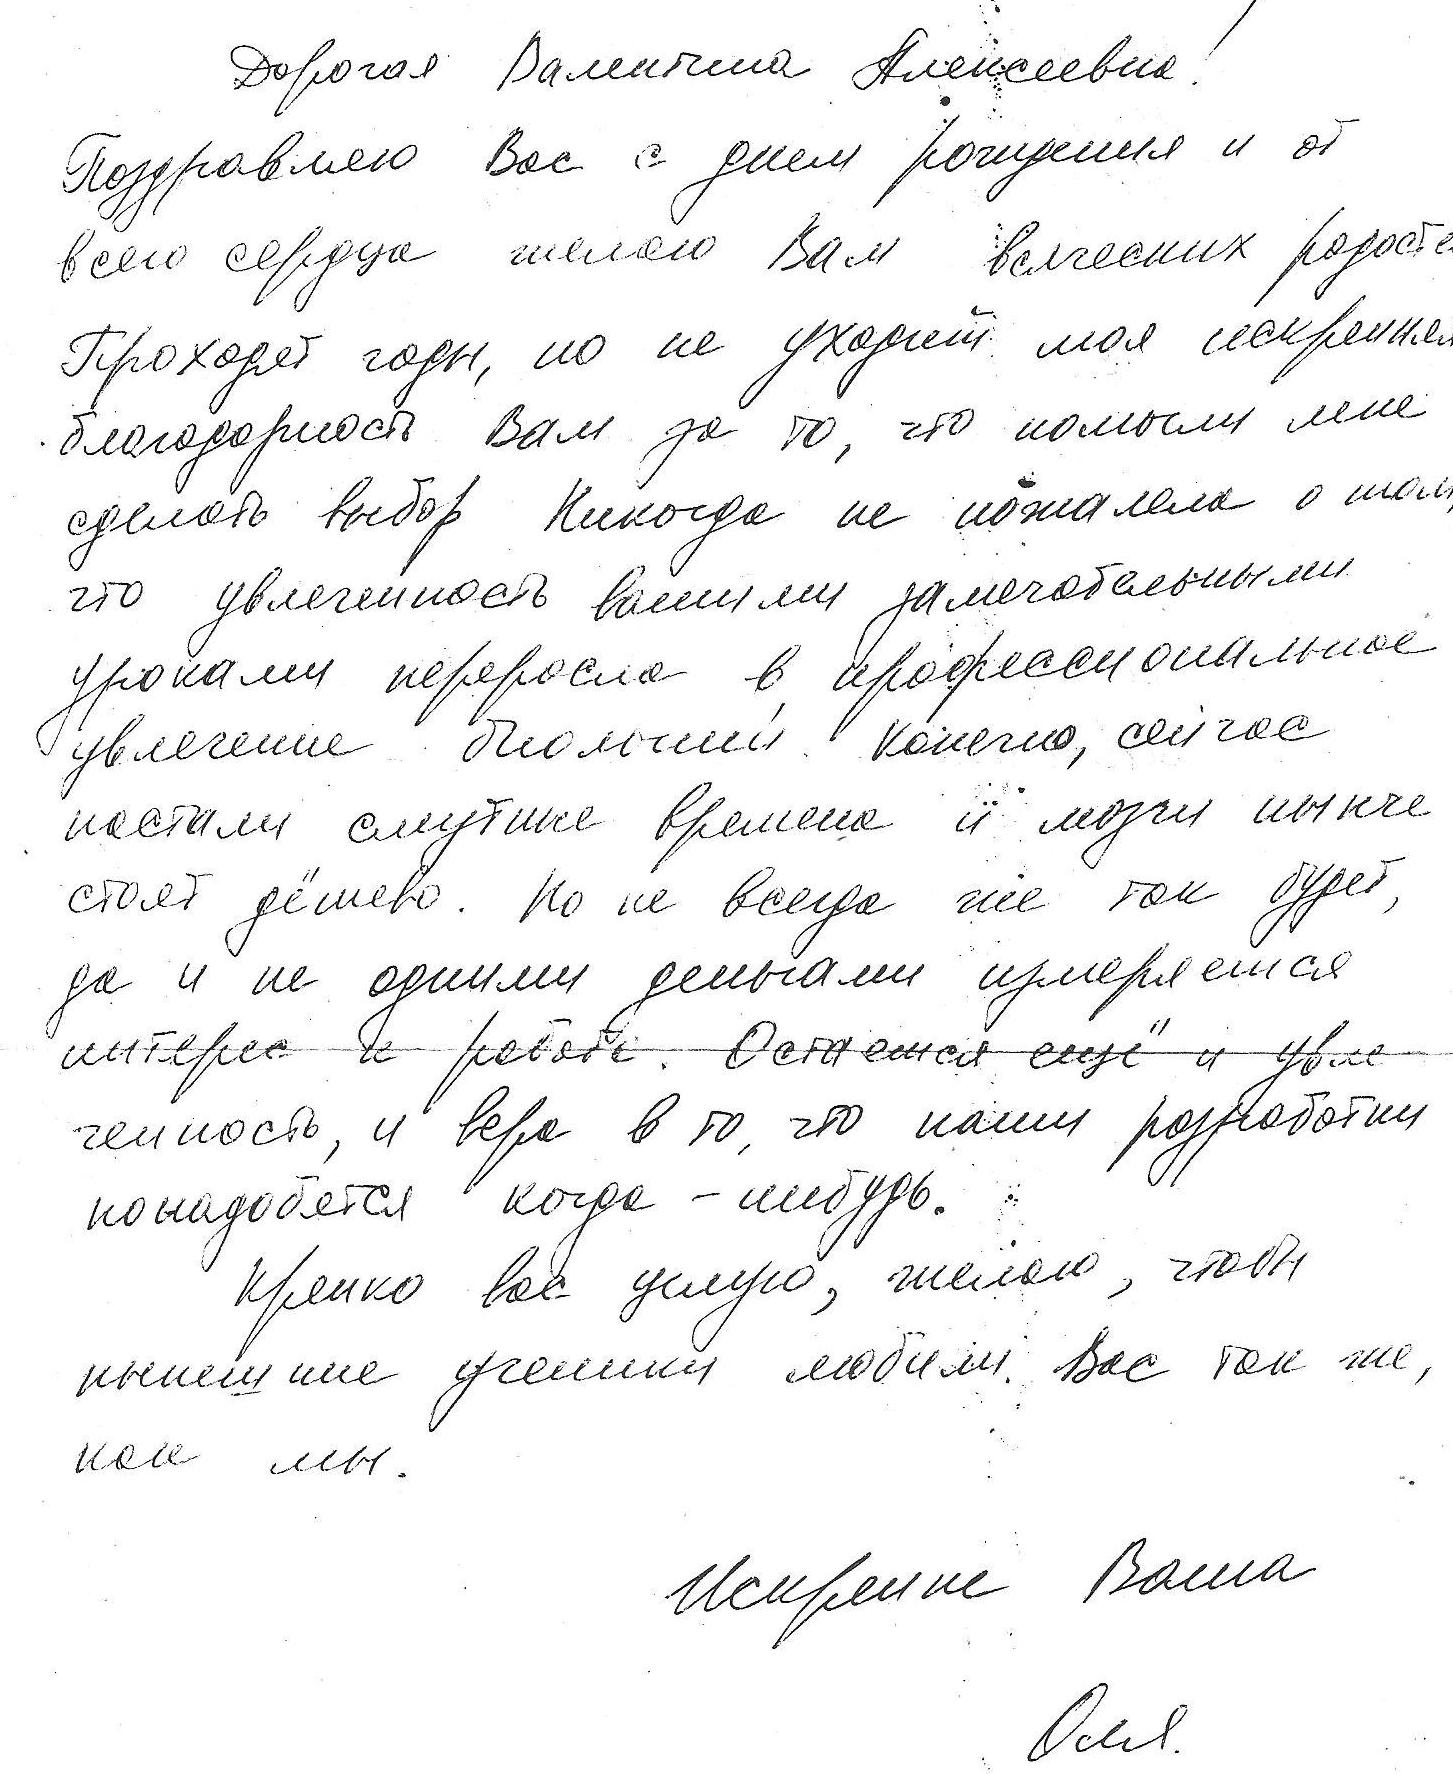 Дорогая Валентина Алексеевна!
Поздравляю Вас с днем рождения и от
всего сердца желаю Вам всяческих радосте
Проходят годы, но не уходит моя искренняя
благодарность Вам за то, что помогли мне
сделать выбор Никогда не пожалела о том,
что увлеченность вашими замечательными
уроками переросла в профессиональное
увлечение биологией. Конечно, сейчас
настали смутные времена и мозги нынче
стоят дёшево. Но не всегда же так будет,
да и не одними деньгами измеряется
интерес к работе. Остается ещё и увле
ченность, и вера в то, что наши разработки
понадобятся когда-нибудь.
Крепко вас целую, желаю, чтобы
нынешние ученики любили Вас так же,
как мы.
Искренне Ваша
Оля.